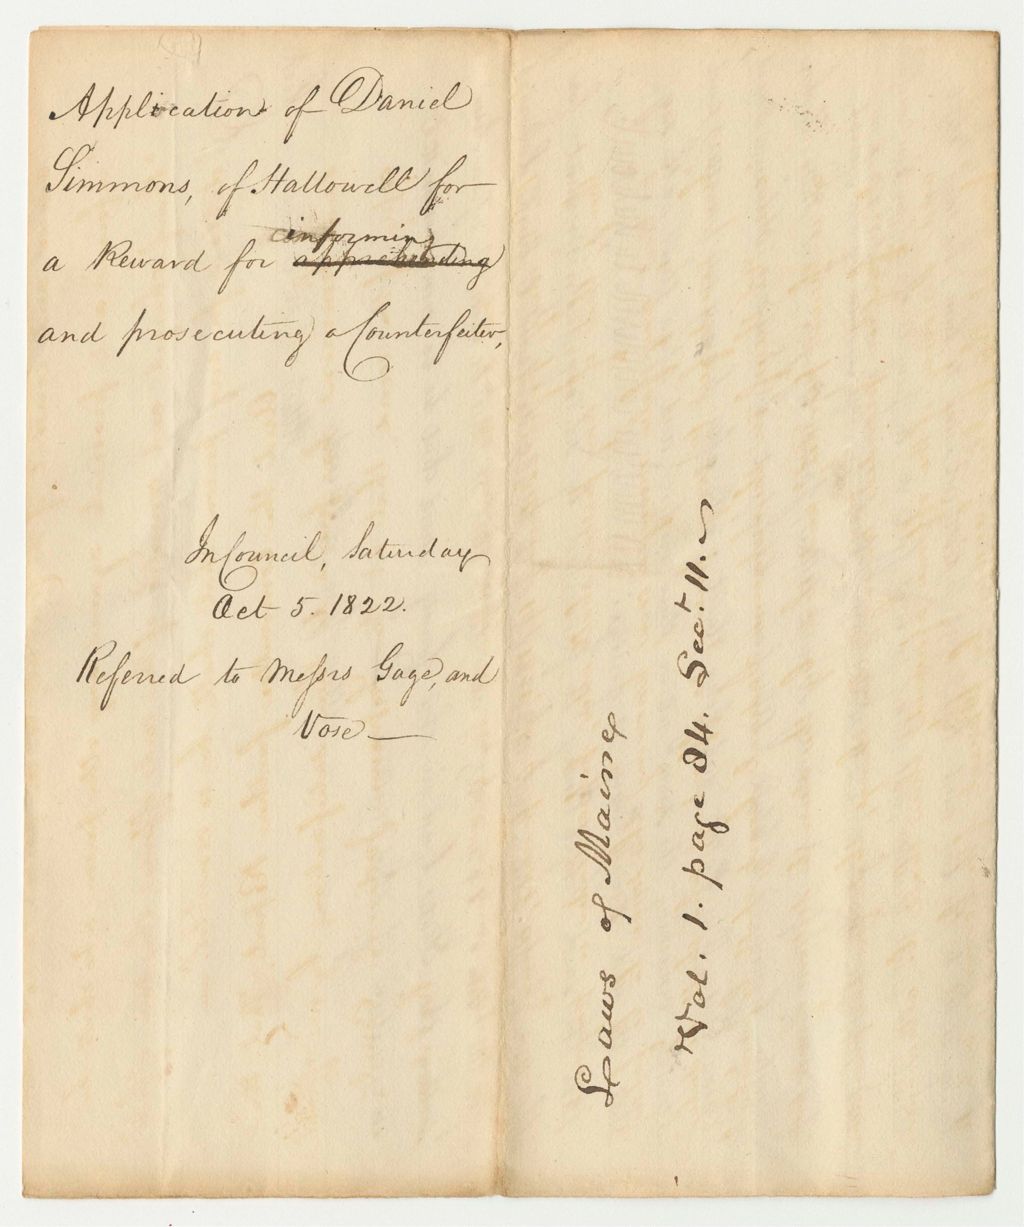 Application of Daniel
Simmons, of Hallowell for
informing
a Reward for apprehending
and prosecuting a Counterfeiter,
In Council, Saturday
Oct 5. 1822.
Referred to Messrs Gage, and
Vose —
Laws of Maine
Vol. 1. page 84. Sect. 11. ~